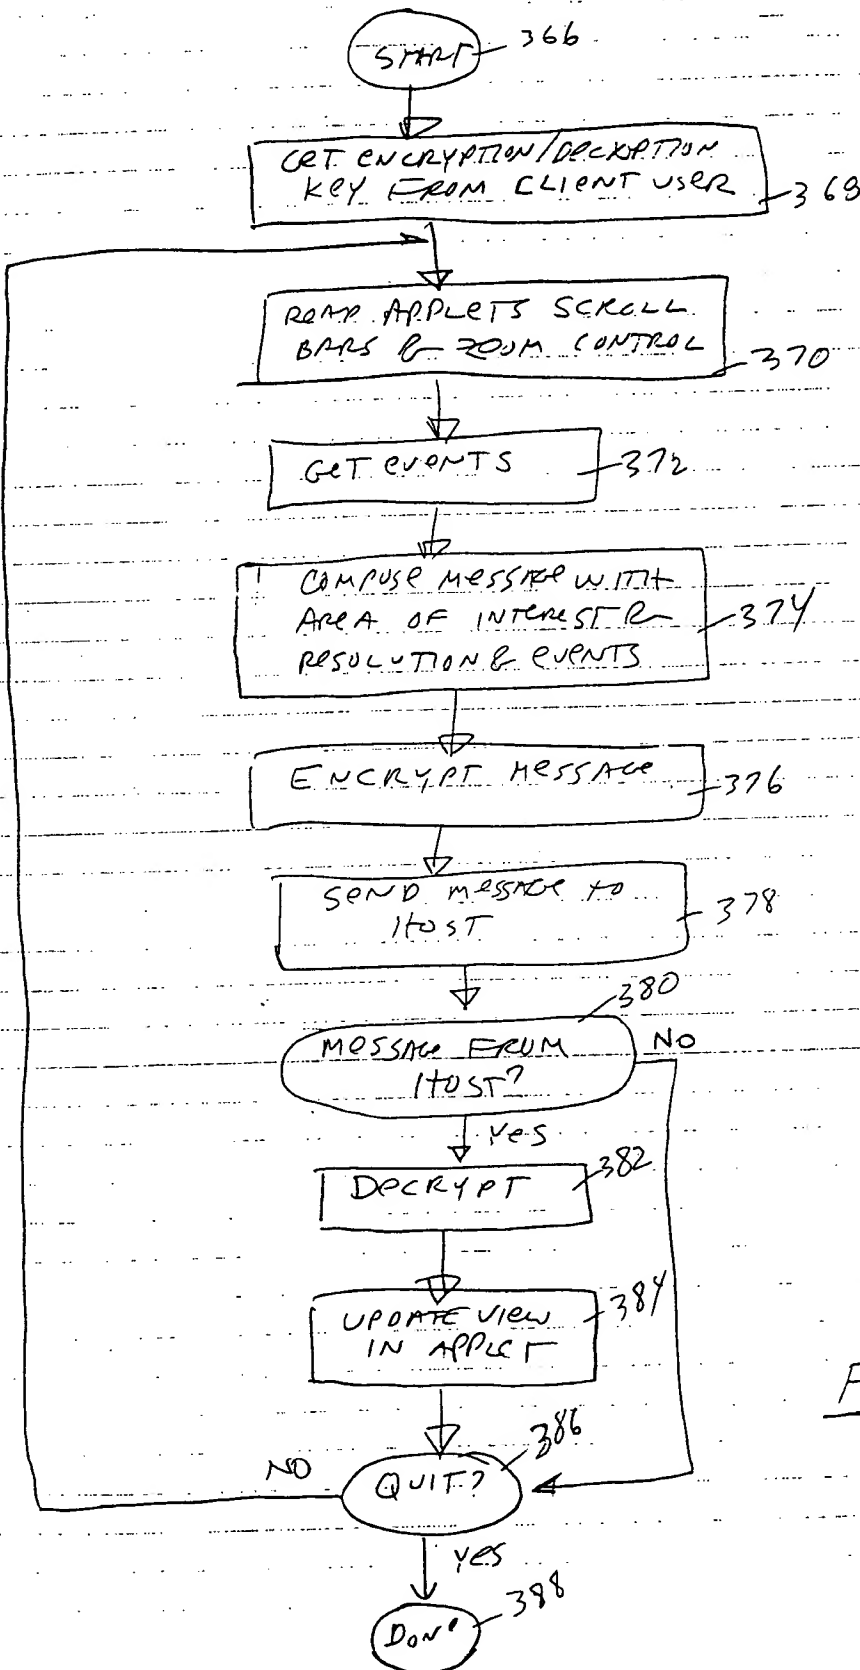 START 366
GET ENCRYPTION/DECRYPTION
KEY FROM CLIENT USER
368
READ APPLETS SCROLL
BARS & ZOOM CONTROL
370
GET EVENTS 372
COMPOSE MESSAGE WITH
AREA OF INTEREST &
RESOLUTION & EVENTS
374
ENCRYPT MESSAGE
376
SEND MESSAGE TO
HOST
378
380
MESSAGE FROM
HOST?
NO
Yes
DECRYPT
382
UPDATE VIEW
IN APPLET
384
386
NO
QUIT?
yes
DONE 388
F